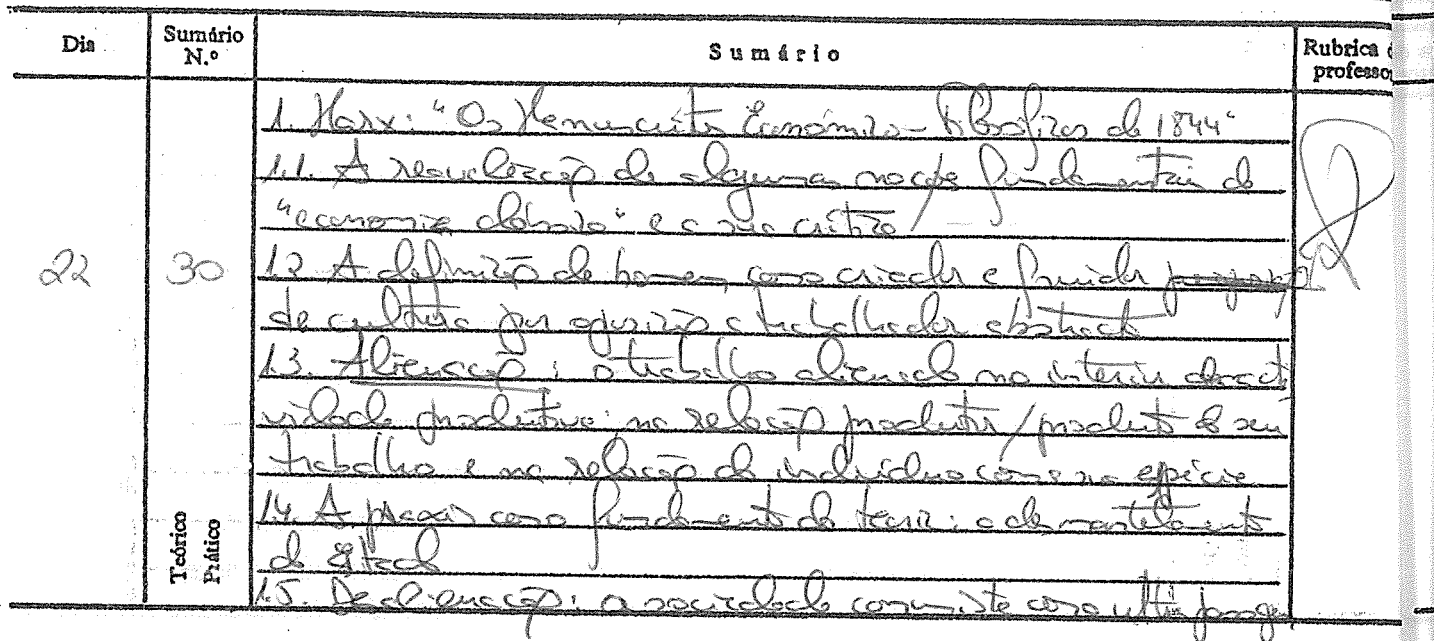 Dia
Sumário N.º
Sumário
Rubrica
professor
1. Marx: "Os Manuscritos Económico-Filosóficos de 1844"
1.1. A reavaliação de algumas noções fundamentais da
"economia clássica" e a sua crítica
22
30
1.2 A definição de homem como criador e fruidor
de cultura por oposição a trabalhador abstracto
1.3. Alienação: o trabalho alienado no interior da acti
vidade produtiva: na relação produtor/produto do seu
trabalho e na relação do indivíduo com a sua espécie
1.4. A praxis como fundamento da teoria: o desmantelamento
do Estado
Teórico
Prático
1.5. Desalienação: a sociedade comunista como